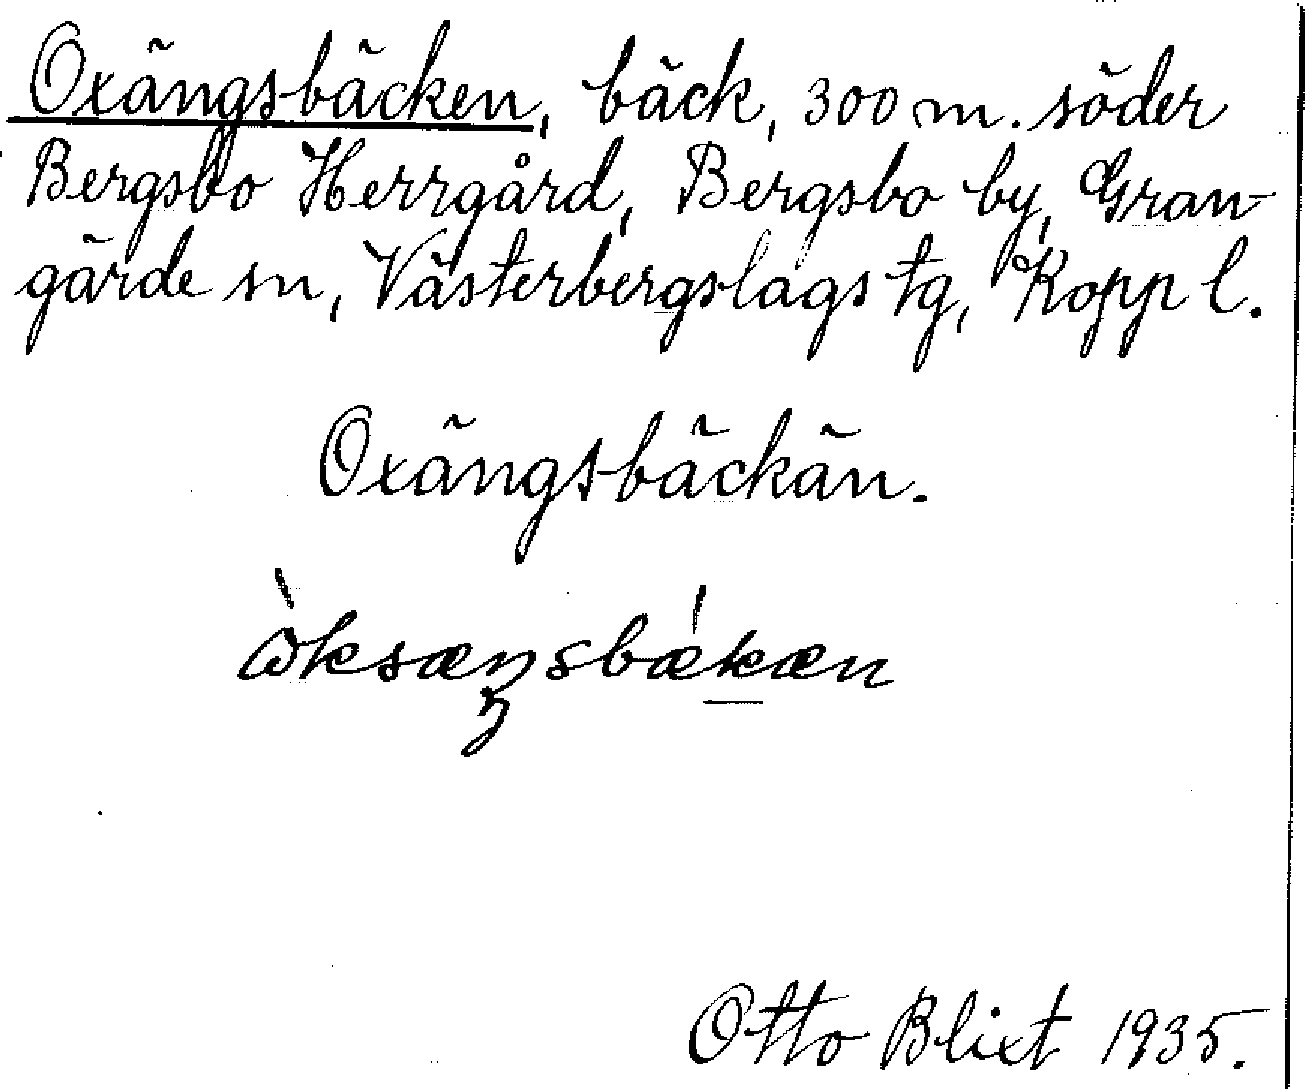 Oxängsbäcken, bäck, 300 m. söder
Bergsbo Herrgård, Bergsbo by, Gran-
gärde sn, Västerbergslags tg, Kopp l.
Oxängsbäckän.
Otto Blixt 1935.